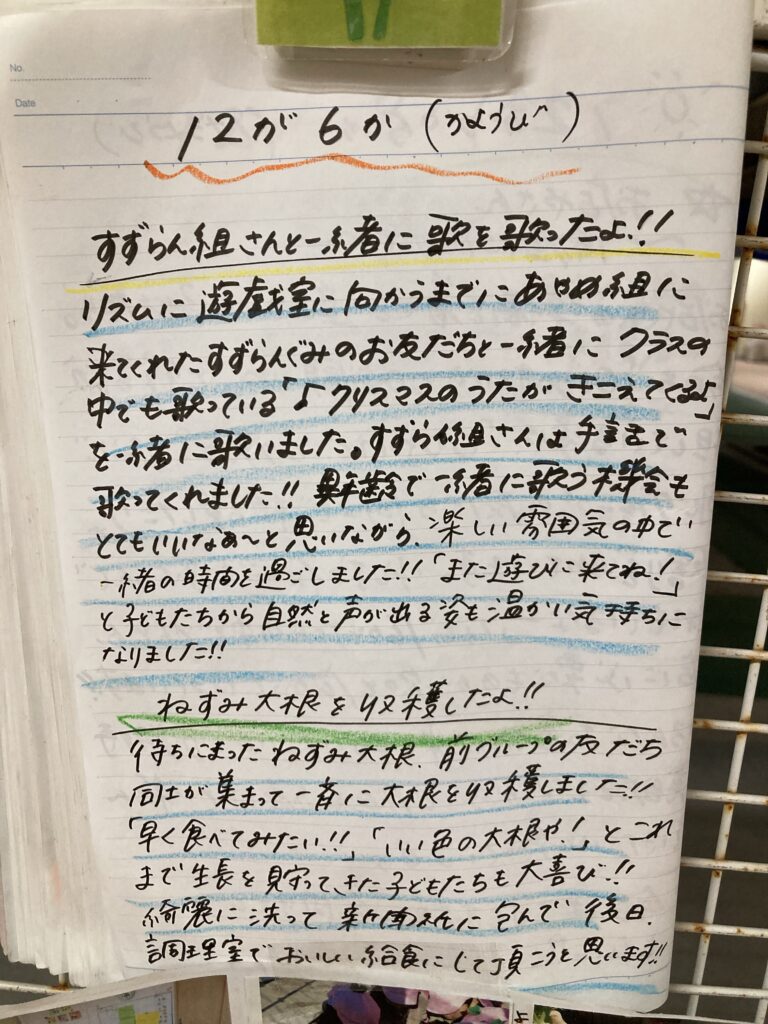 No.
Date
12が6か(かようび)
すずらん組さんと一緒に歌を歌ったよ!!
リズムに遊戯室に向かうまでにあやめ組に
来てくれたすずらんぐみのお友だちと一緒にクラスの
中でも歌っている「♪クリスマスのうたがきこえてくるよ」
を一緒に歌いました。すずらん組さんは手話で
歌ってくれました!!異年齢で一緒に歌う機会も
とてもいいなぁ〜と思いながら、楽しい雰囲気の中で
一緒の時間を過ごしました!!「また遊びに来てね!」
と子どもたちから自然と声が出る姿も温かい気持ちに
なりました!!
ねずみ大根を収穫したよ!!
待ちにまったねずみ大根、前グループの友だち
同士が集まって一斉に大根を収穫しました!!
「早く食べてみたい!!」「いい色の大根や!」とこれ
まで生長を見守ってきた子どもたちも大喜び!!
綺麗に洗って新聞紙に包んで後日、
調理室でおいしい給食にして頂こうと思います!!